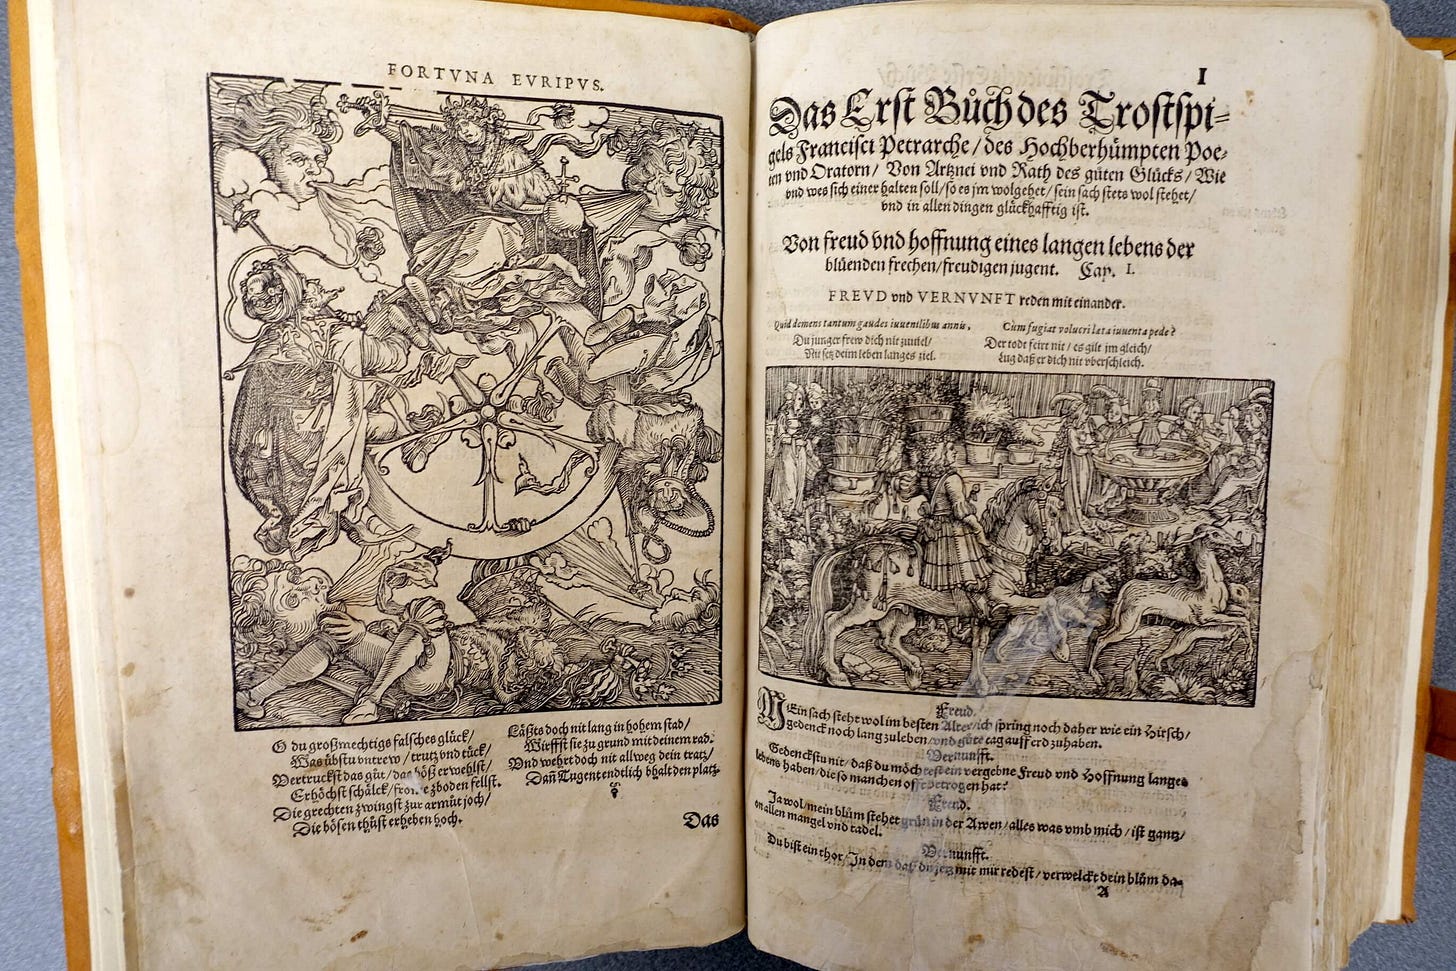 FORTVNA EVRIPVS.
O du großmechtigs falsches glück/
Was übstu vntrew/ trutz vnd tück/
Vertruckst das gůt/ das böß erwehlst/
Erhöchst schälck/ from̃e zboden fellst.
Die grechten zwingst zur armůt joch/
Die bösen thůst erheben hoch.
Läßits doch nit lang in hohem stad/
Wirffst sie zu grund mit deinem rad.
Vnd wehrt doch nit allweg dein tratz/
Dañ Tugent endtlich bhalt den platz.
Das
I
Das Erst Bůch des Trostspi-
gels Francisci Petrarche/ des Hochberhümpten Poe-
ten vnd Oratorn/ Von Artznei vnd Rath des gůten Glücks/ Wie
vnd wes sich einer halten soll/ so es jm wolgehet/ sein sach stets wol stehet/
vnd in allen dingen glückhafftig ist.
Von freud vnd hoffnung eines langen lebens der
blüenden frechen/ freudigen jugent. Cap. I.
FREVD vnd VERNVNFT reden mit einander.
Quid demens tantum gaudes iuuenilibus annis,
Du junger frew dich nit zuuiel/
Nit setz deim leben langes ziel.
Cùm fugiat volucri lata iuuenta pede?
Der todt feirt nit/ es gilt jm gleich/
Lug daß er dich nit vberschleich.
Freud.
MEin sach steht wol im besten Alter/ ich spring noch daher wie ein Hirsch/
gedenck noch lang zuleben/ vnd gůte tag auff erd zuhaben.
Vernunfft.
Gedenckstu nit/ daß du möchtest ein vergebne Freud vnd Hoffnung langes
lebens haben/ die so manchen offt betrogen hat?
Freud.
Ja wol/ mein blům stehet grün in der Awen/ alles was vmb mich/ ist gantz/
on allen mangel vnd tadel.
Vernunfft.
Du bist ein thor/ In dem daß du jetz mit mir redest/ verwelckt dein blům da-
A